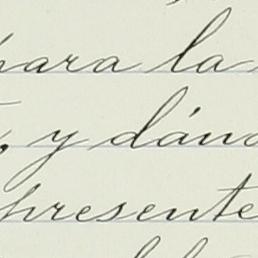 para la
, y dánd
presente